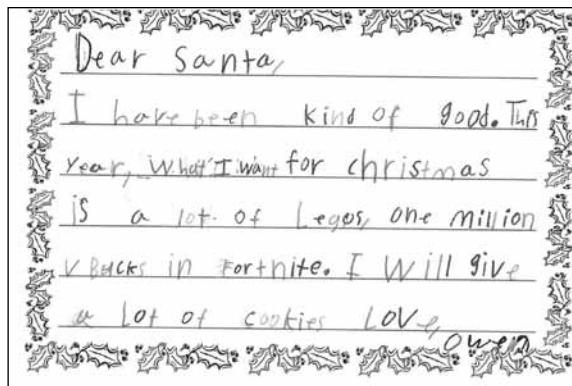 Dear Santa,
I have been kind of good. This
year, What I want for christmas
is a lot of Legos, one million
V Bucks in Fortnite. I will give
a lot of cookies Love, Owen